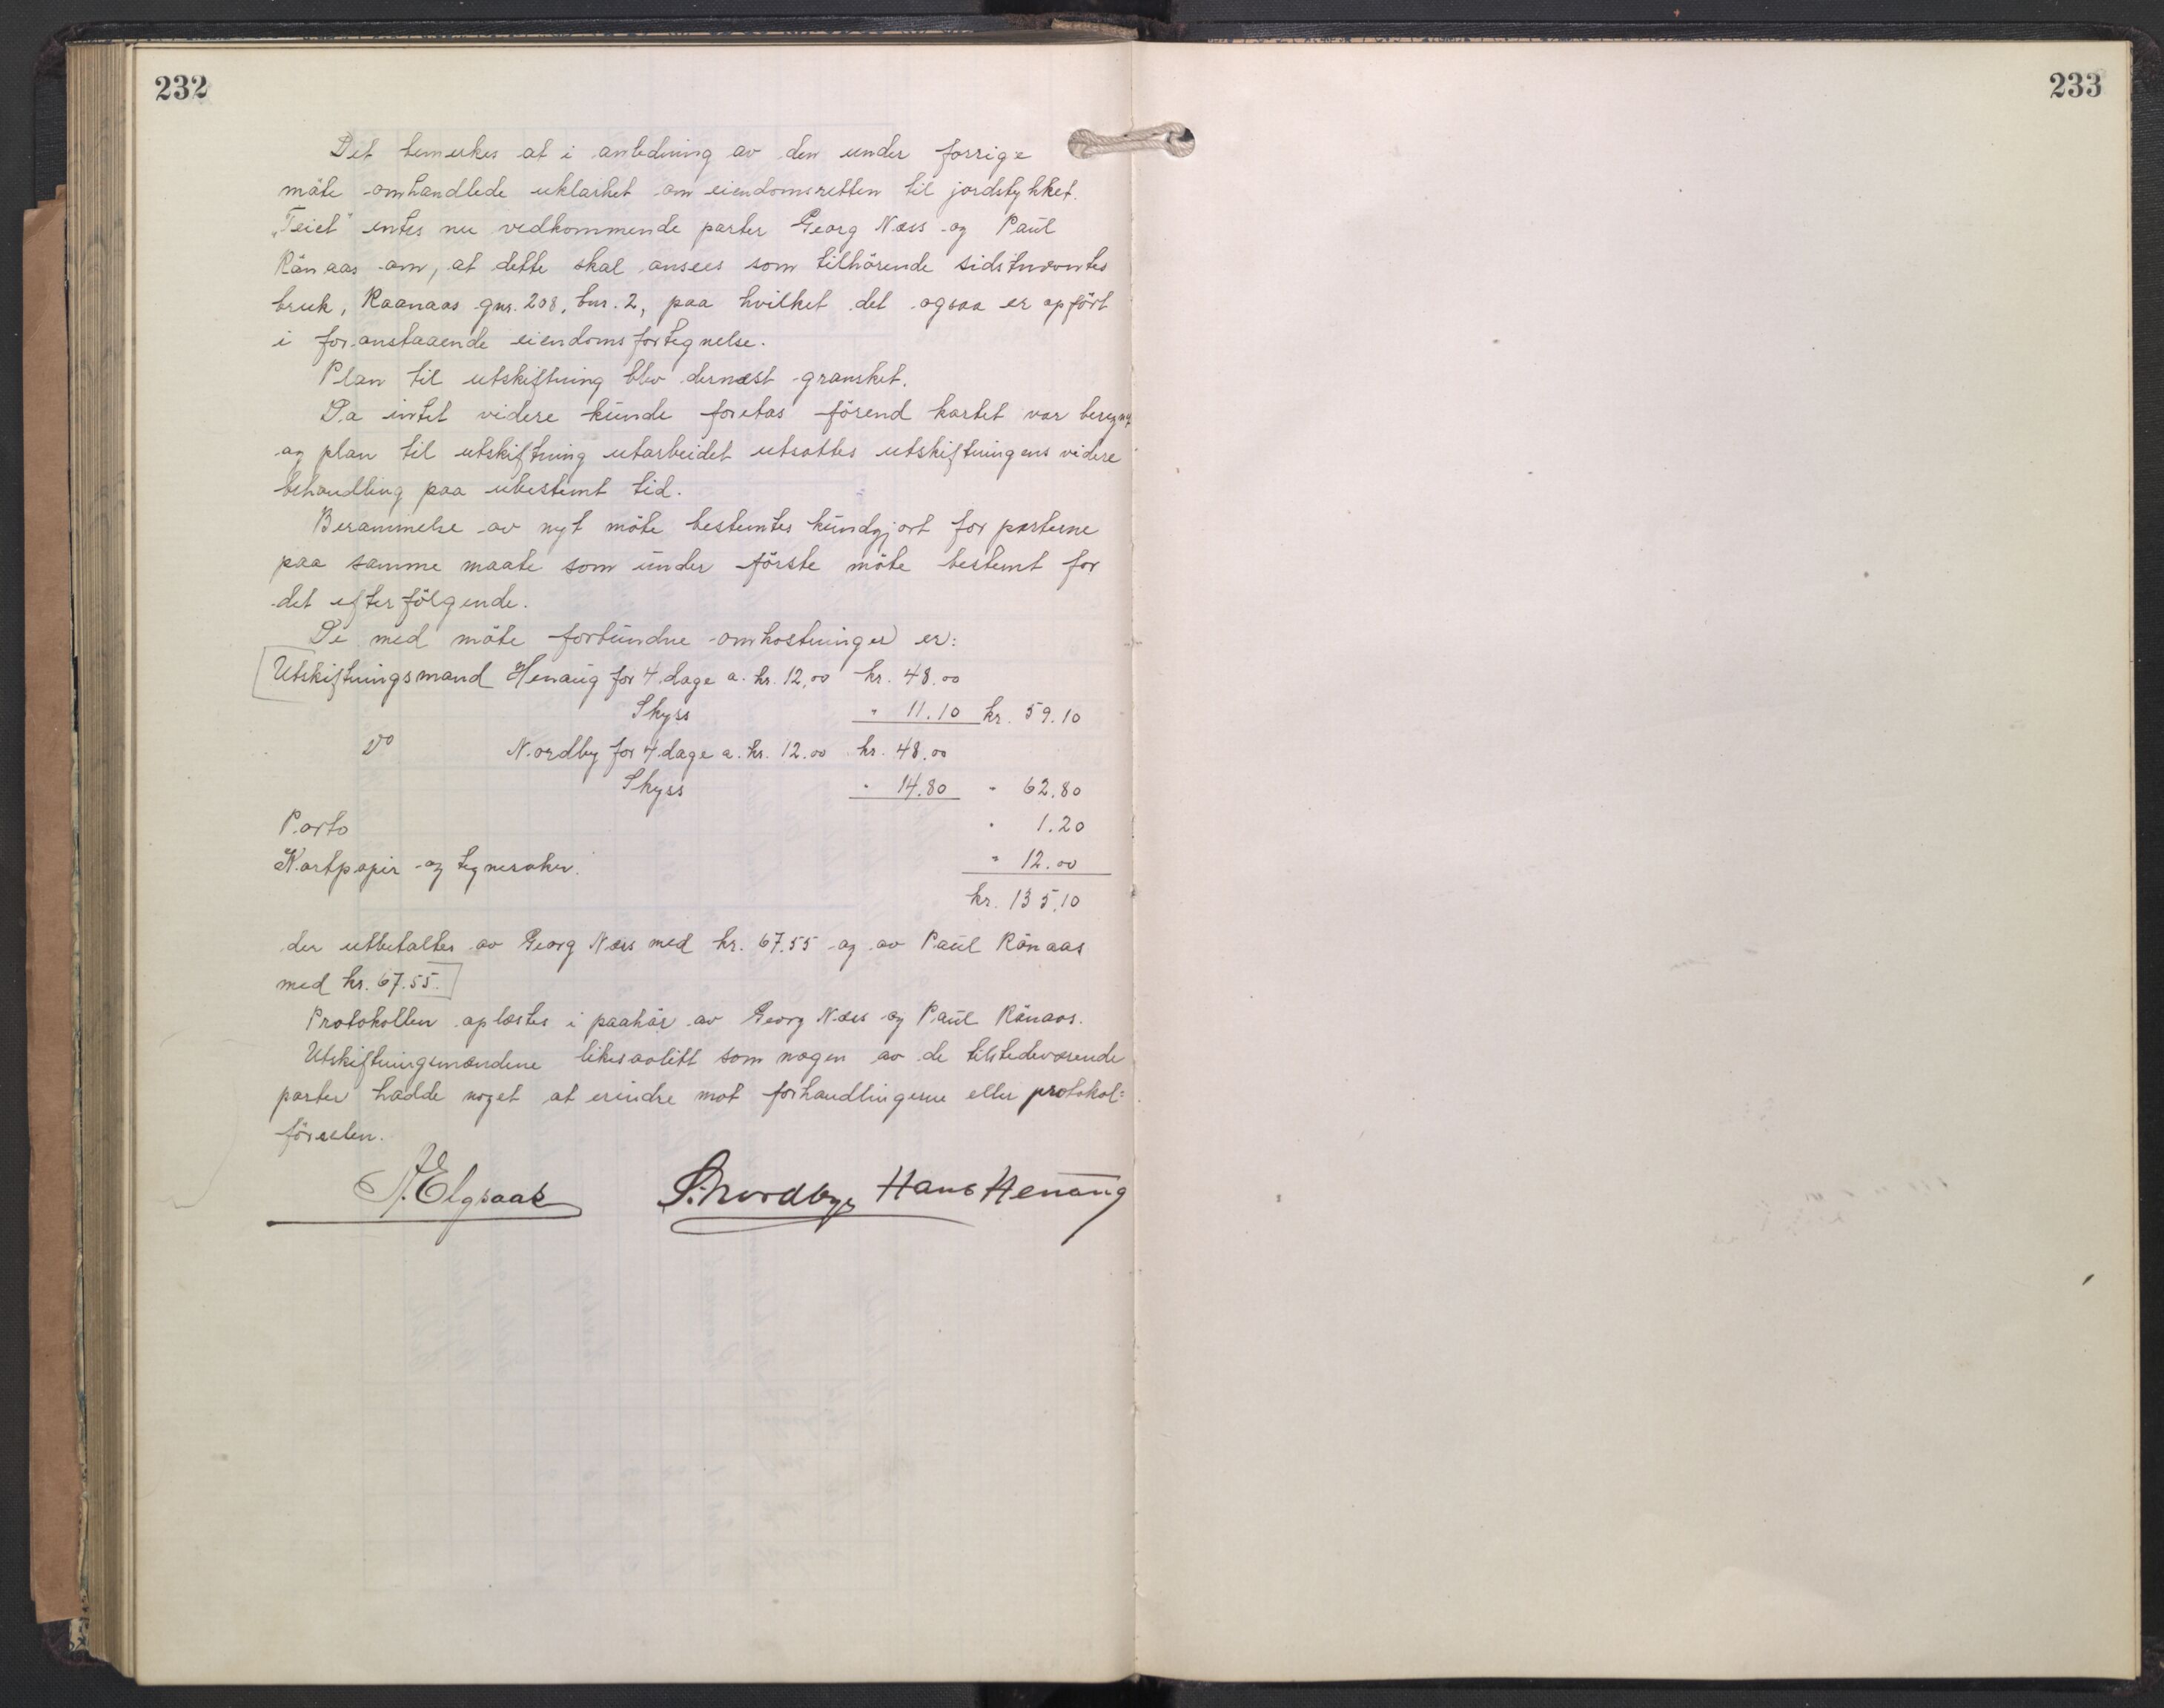 232
233
Det bemerkes at i anledning av den under forrige
möte omhandlede uklarhet om eiendomsretten til jordstykket.
"Teiet" entes nu vedkommende parter Georg Næss og Paul
Rånaas om, at dette skal ansees som tilhörende sidstnævntes
bruk, Raanaas gnr. 208, bnr. 2, paa hvilket det ogsaa er opfört
i foranstaaende eiendomsfortegnelse.
Plan til utskiftning blev dernæst gransket.
Da intet videre kunde foretas förend kartet var beregnet
og plan til utskiftning utarbeidet utsattes utskiftningens videre
behandling paa ubestemt tid.
Berammelse av nyt möte bestemtes kundgjort for parterne
paa samme maate som under förste möte bestemt for
det efterfölgende.
De med möte forbundne omkostninger er:
Utskiftningsmand Henaug for 4 dage a. kr. 12,00 kr. 48.00
Skyss " 11.10 kr. 59.10
do Nordby for 4 dage a. kr. 12.00 kr. 48.00
Skyss " 14.80 " 62.80
Porto " 1.20
Kartpapir og tegnesaker. " 12.00
kr. 135.10
der utbetaltes av Georg Næss med kr. 67.55 og av Paul Rånaas
med kr. 67.55.
Protokollen oplæstes i paahör av Georg Næss og Paul Rånaas.
Utskiftningsmændene likesaalitt som nogen av de tilstedeværende
parter hadde noget at erindre mot forhandlingerne eller protokol=
förselen.
A. Elgsaas S. Nordbye Hans Henaug